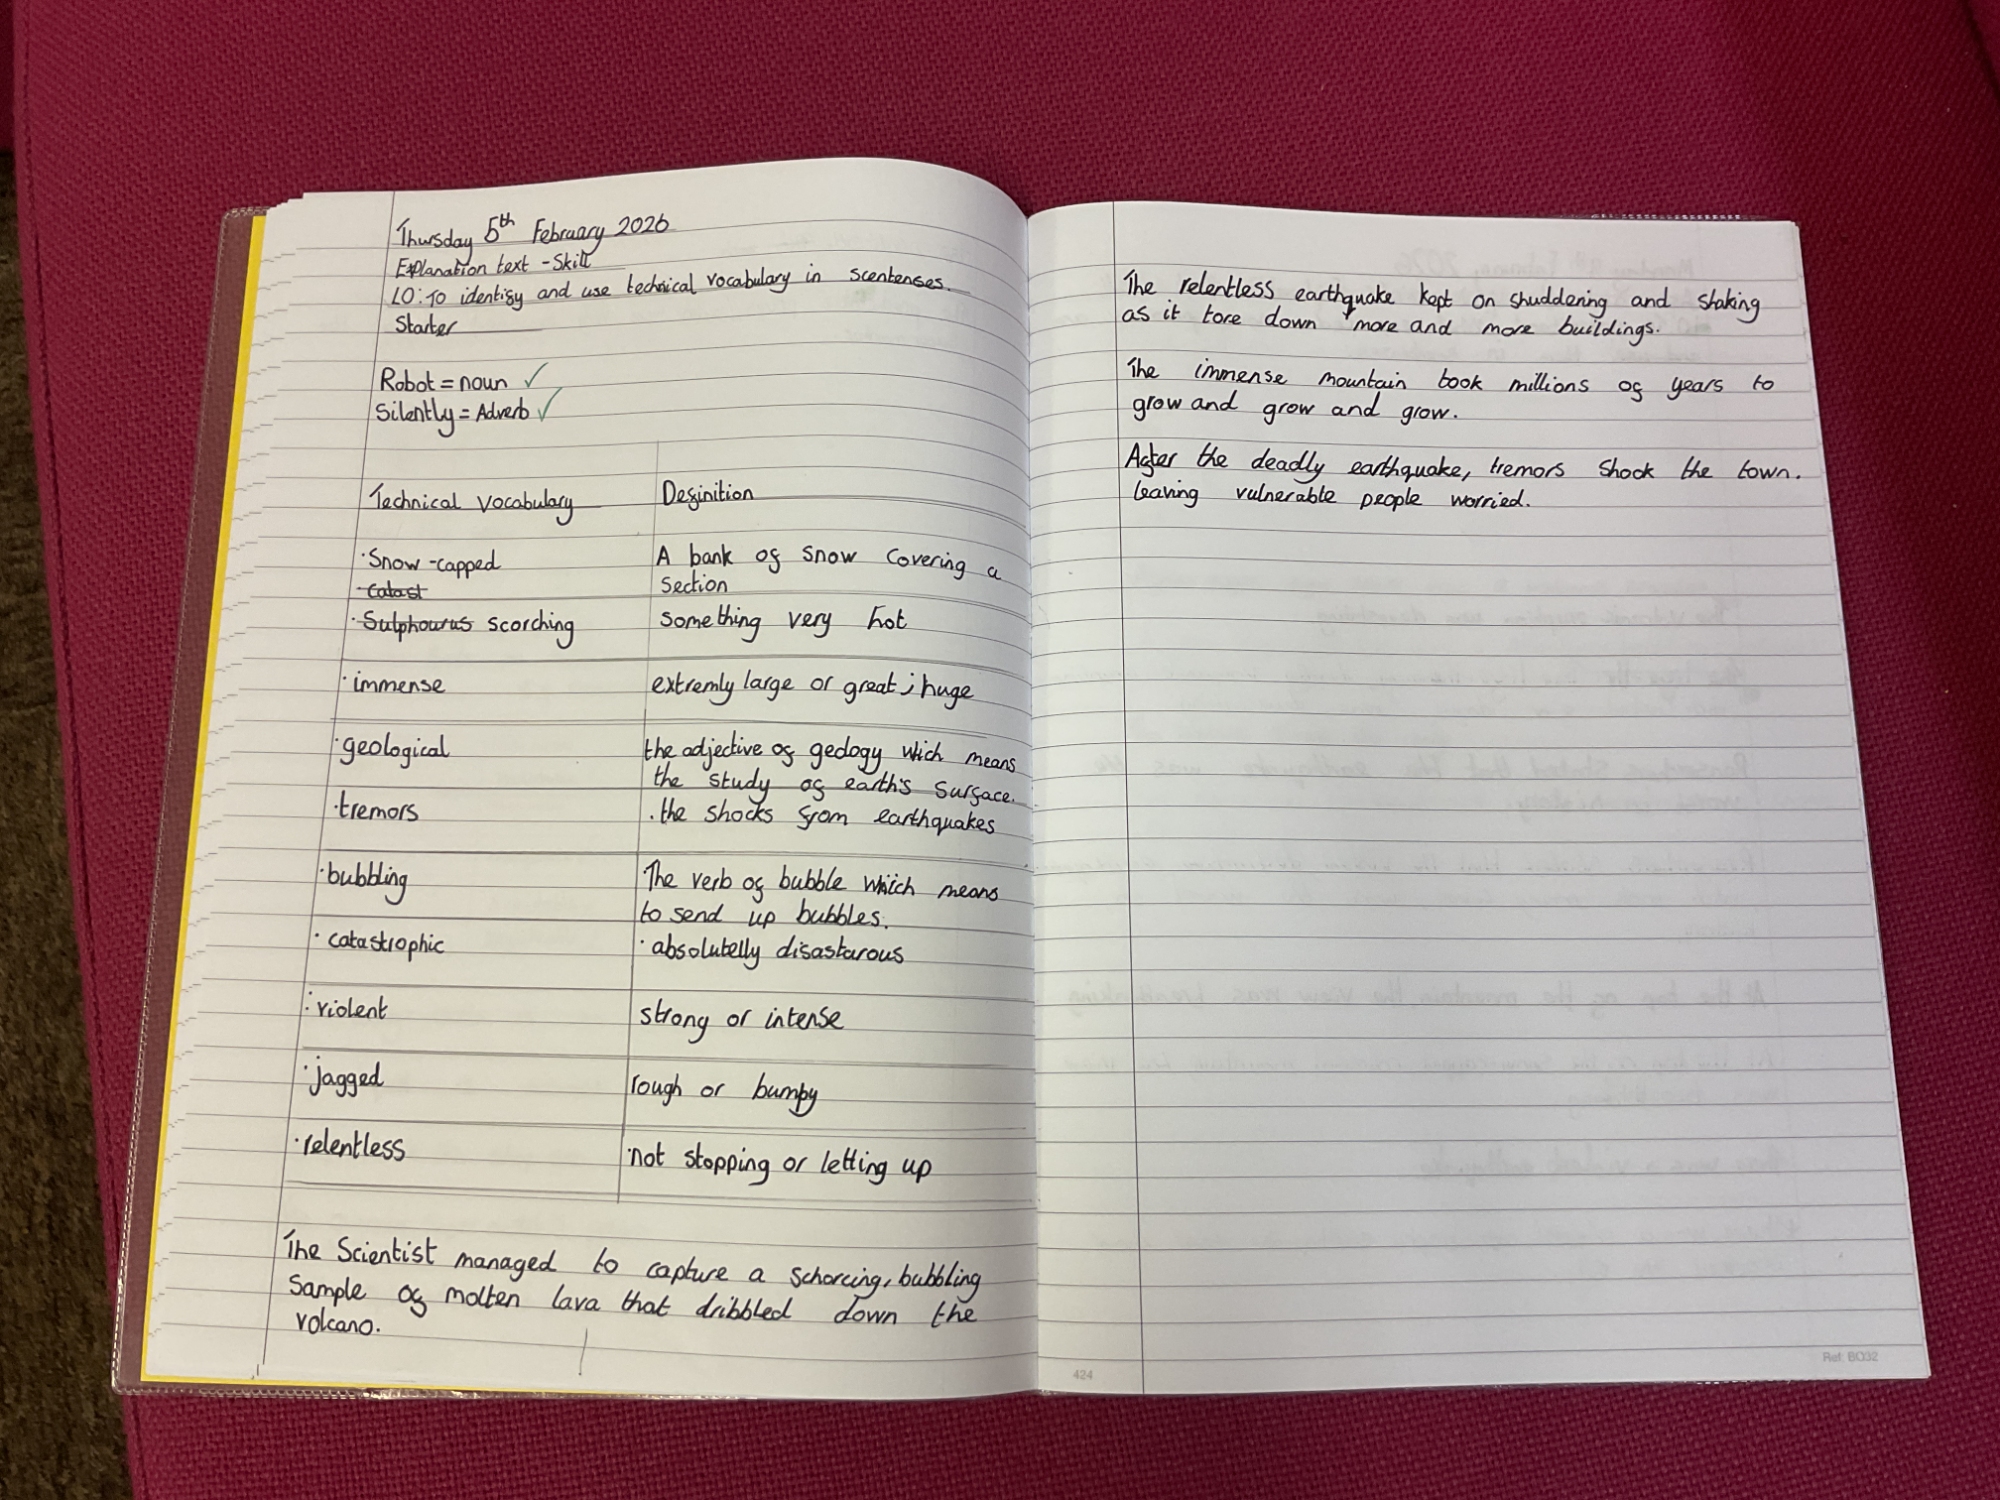 Thursday 5th February 2026
Explanation text - Skill
LO: To identify and use technical vocabulary in scentenses.
Starter
Robot = noun ✓
Silently = Adverb ✓
Technical Vocabulary Definition
· Snow-capped A bank of snow covering a
Catast section
· Sulphourus scorching something very hot
· immense extremly large or great; huge
· geological the adjective of geology which means
the study of earth's surface.
· tremors . the shocks from earthquakes
· bubbling The verb of bubble which means
to send up bubbles.
· catastrophic · absolutelly disastarous
· violent strong or intense
· jagged rough or bumpy
· relentless not stopping or letting up
The Scientist managed to capture a schorcing, bubbling
sample of molten lava that dribbled down the
volcano.
424
The relentless earthquake kept on shuddering and shaking
as it tore down more and more buildings.
The immense mountain took millions of years to
grow and grow and grow.
After the deadly earthquake, tremors shook the town.
leaving vulnerable people worried.
Ref: BO32